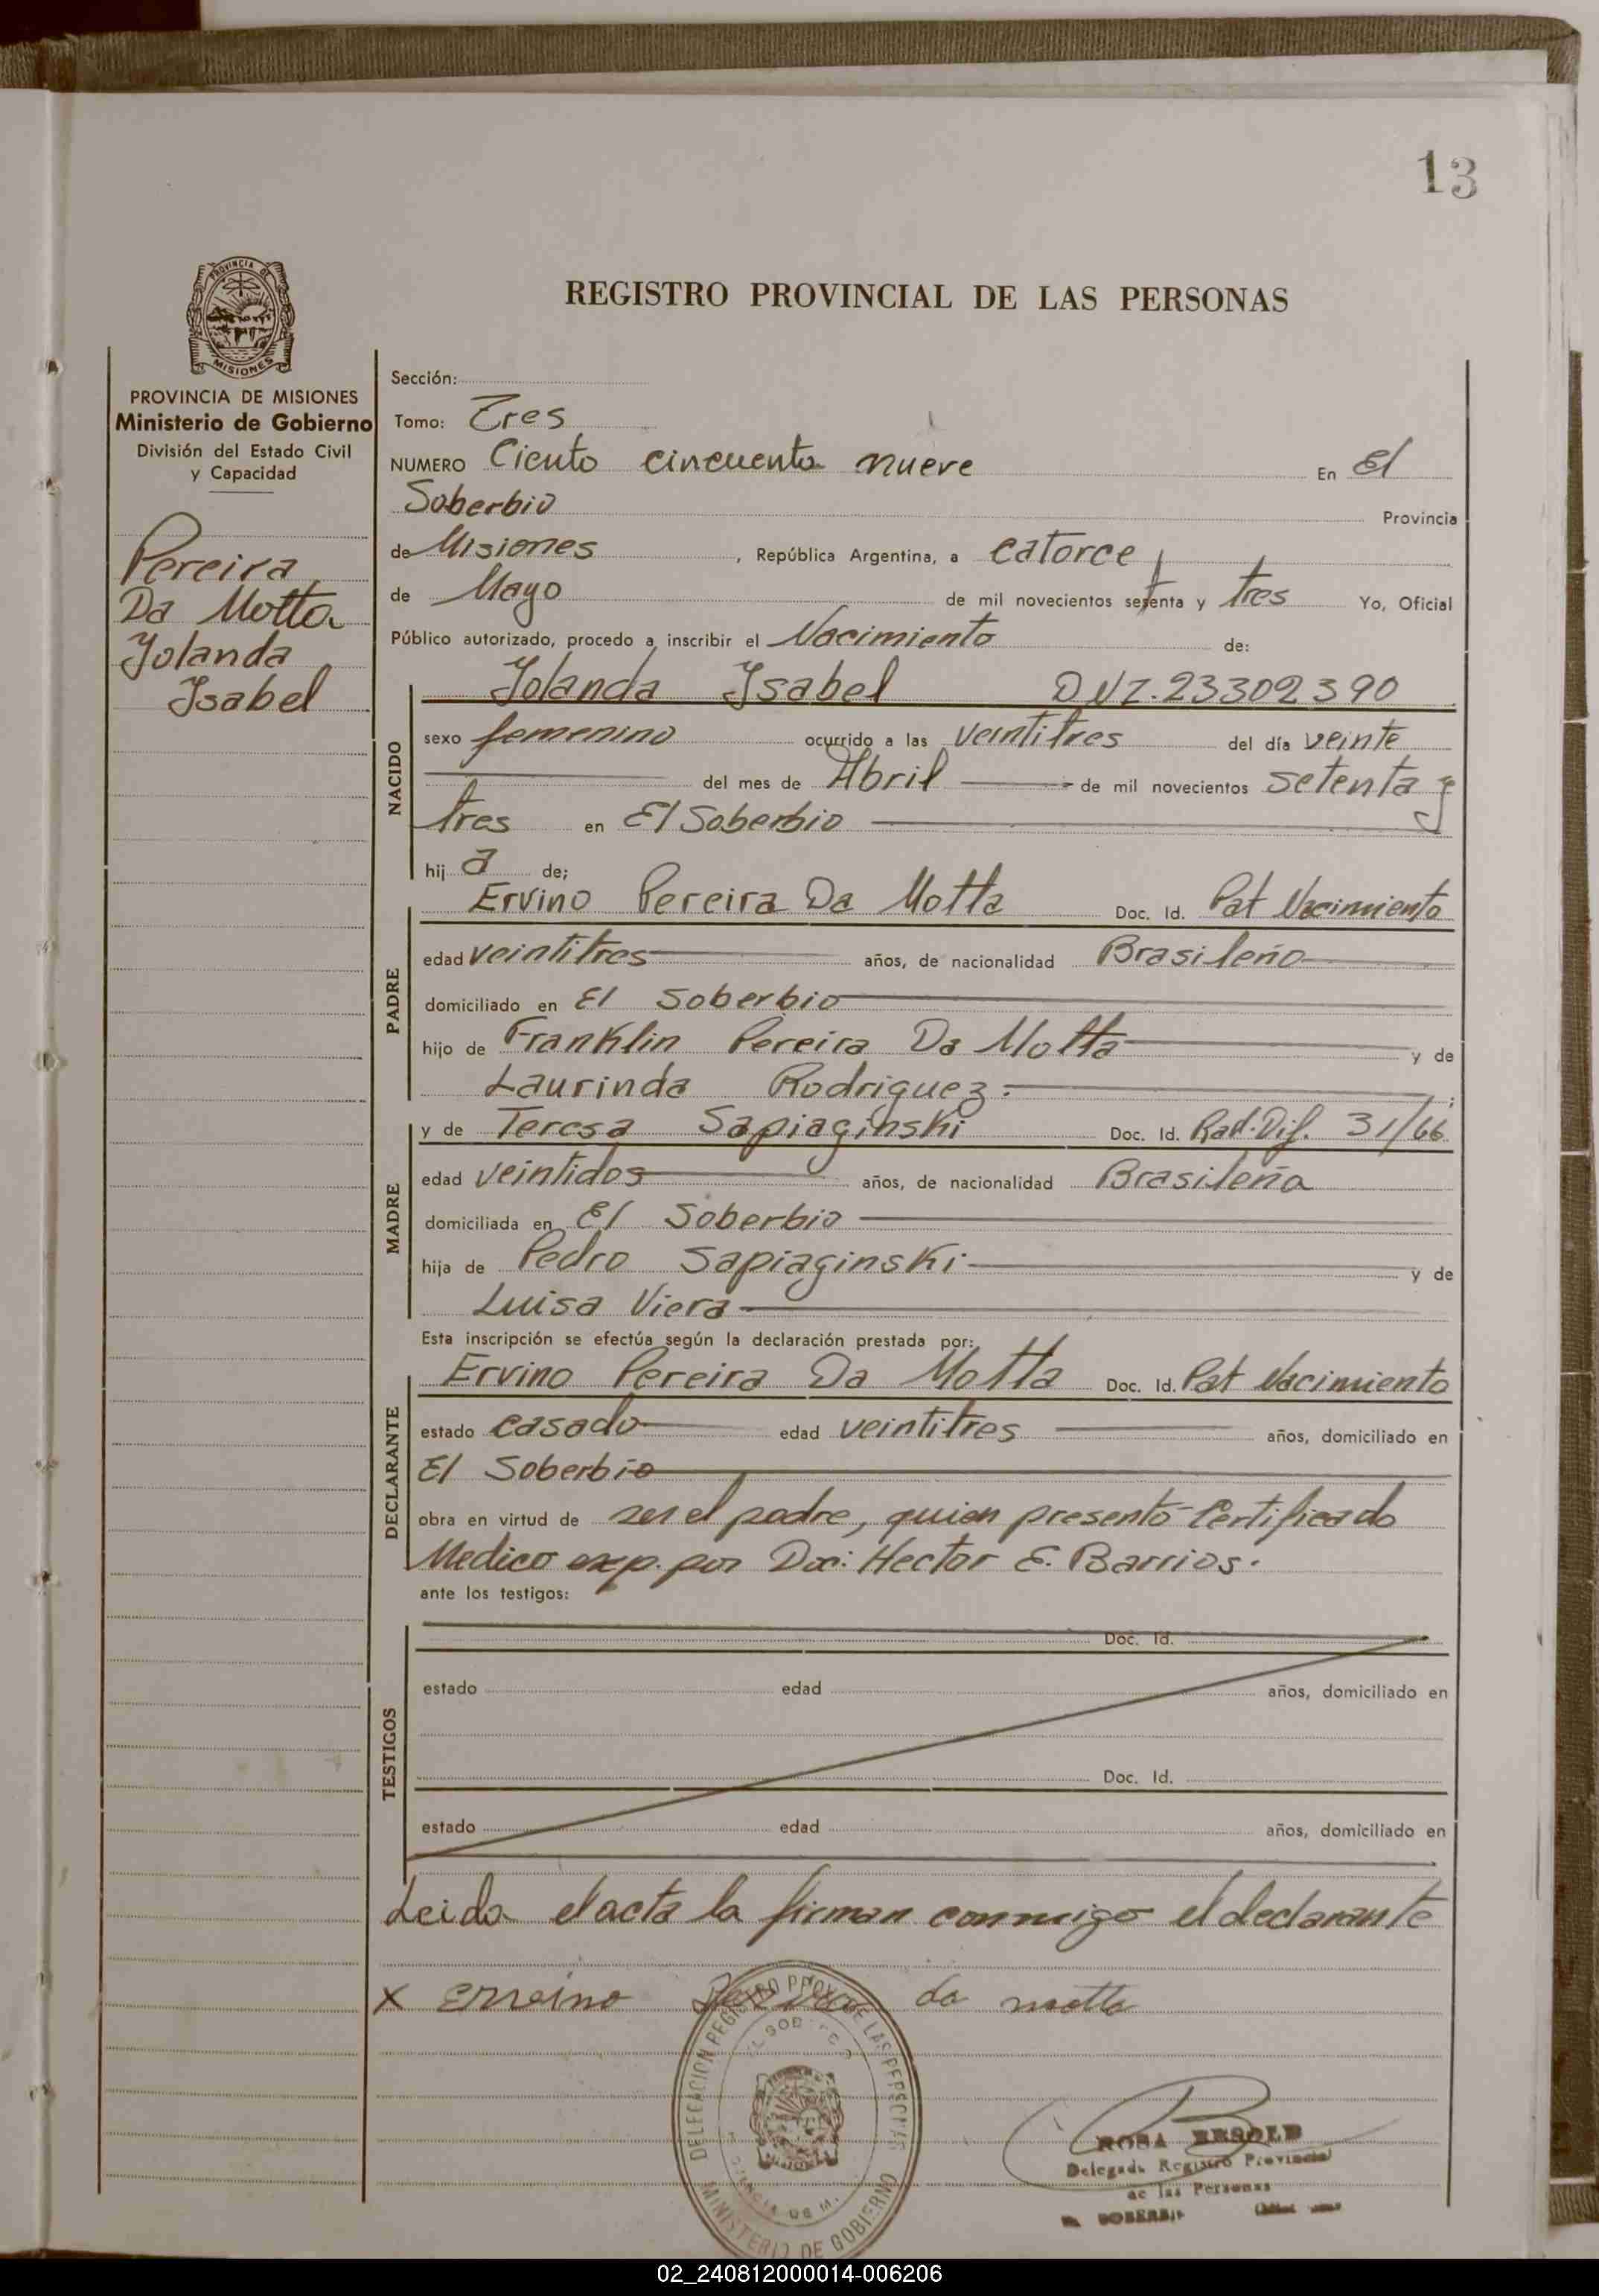 13
PROVINCIA DE
MISIONES
REGISTRO PROVINCIAL DE LAS PERSONAS
PROVINCIA DE MISIONES
Ministerio de Gobierno
División del Estado Civil
y Capacidad
Pereira
Da Motta
Yolanda
Ysabel
Sección:
Tomo: Tres
NUMERO Ciento cincuenta nueve En El
Soberbio Provincia
de Misiones, República Argentina, a catorce
de Mayo de mil novecientos setenta y tres Yo, Oficial
Público autorizado, procedo a inscribir el Nacimiento de:
NACIDO
Yolanda Ysabel DNI. 23302390
sexo femenino ocurrido a las veintitres del día veinte
del mes de Abril de mil novecientos setenta y
tres en El Soberbio
hij a de;
PADRE
Ervino Pereira Da Motta Doc. Id. Pat Nacimiento
edad veintitres años, de nacionalidad Brasileño
domiciliado en El Soberbio
hijo de Franklin Pereira Da Motta y de
Laurinda Rodriguez.;
MADRE
y de Teresa Sapiaginski Doc. Id. Rad. Dif. 31/66
edad veintidos años, de nacionalidad Brasileña
domiciliada en El Soberbio
hija de Pedro Sapiaginski y de
Luisa Viera
Esta inscripción se efectúa según la declaración prestada por:
DECLARANTE
Ervino Pereira Da Motta Doc. Id. Pat Nacimiento
estado casado edad veintitres años, domiciliado en
El Soberbio
obra en virtud de ser el padre, quien presentó Certificado
Medico exp. por Doc: Hector E. Barrios.
ante los testigos:
TESTIGOS
Doc. Id.
estado edad años, domiciliado en
Doc. Id.
estado edad años, domiciliado en
Leida el acta la firman conmigo el declarante
x erveino da motta
DELEGACION REGISTRO PROV. DE LAS PERSONAS
MINISTERIO DE GOBIERNO
ROSA
Delegada Registro Provincial
de las Personas
SOBERBIO
02_240812000014-006206